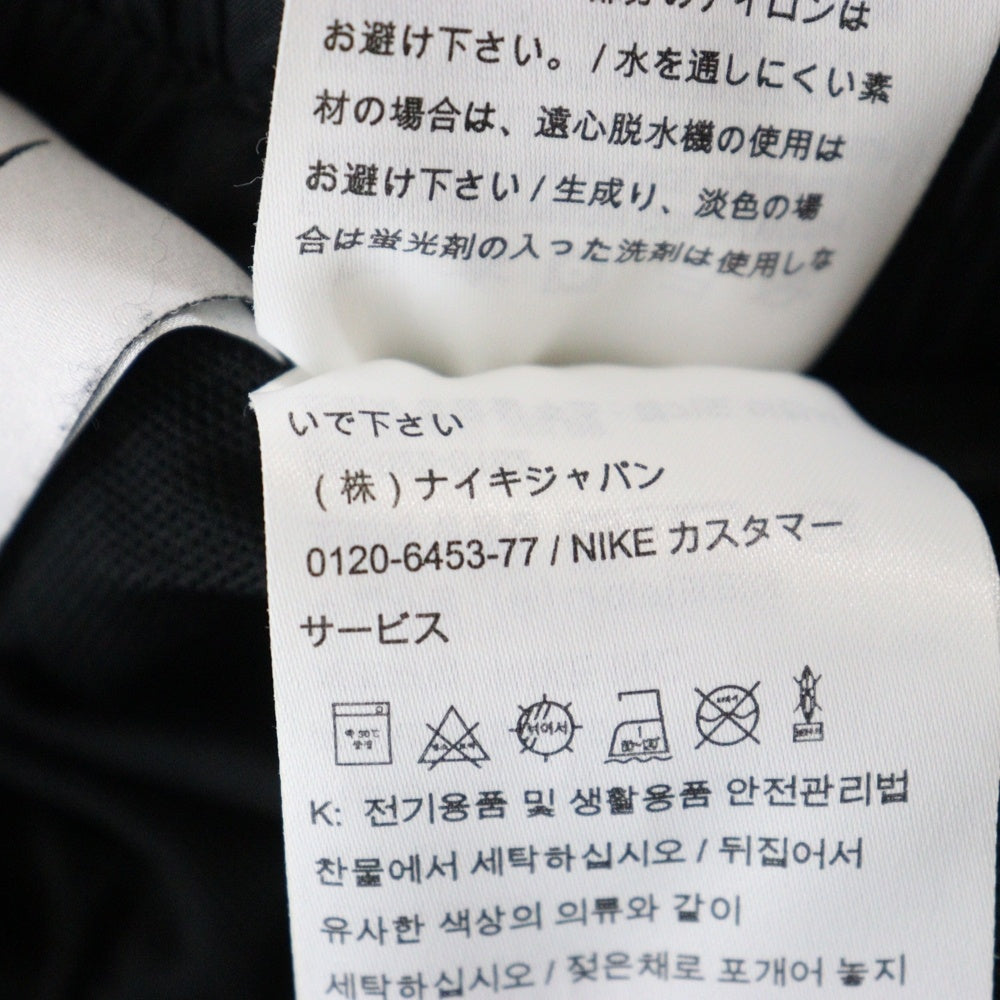 ナイロンは
お避け下さい。/ 水を通しにくい素
材の場合は、遠心脱水機の使用は
お避け下さい / 生成り、淡色の場
合は蛍光剤の入った洗剤は使用しな
いで下さい
(株)ナイキジャパン
0120-6453-77 / NIKE カスタマー
サービス
80~120
K: 전기용품 및 생활용품 안전관리법
찬물에서 세탁하십시오 / 뒤집어서
유사한 색상의 의류와 같이
세탁하십시오 / 젖은채로 포개어 놓지